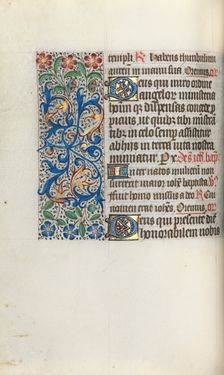 templi. R. Habens thuribulum
aureū in manu sua. Oremus. or
Deus qui miro ordine
angelorū ministeria
hominūq; dispensas concede p
picius, ut quib; tibi minis
trātibꝰ in celo semp assistitur
ab hiis in terra vita nostra
muniatur. P x. De s. ioh. bap.
Inter natos mulierū non
surrexit maior iohē baptista
fuit homo missus a deo R. Cui
nomen erat iohes. Oremus. or
Deus qui presentē diē
honorabilem nobis